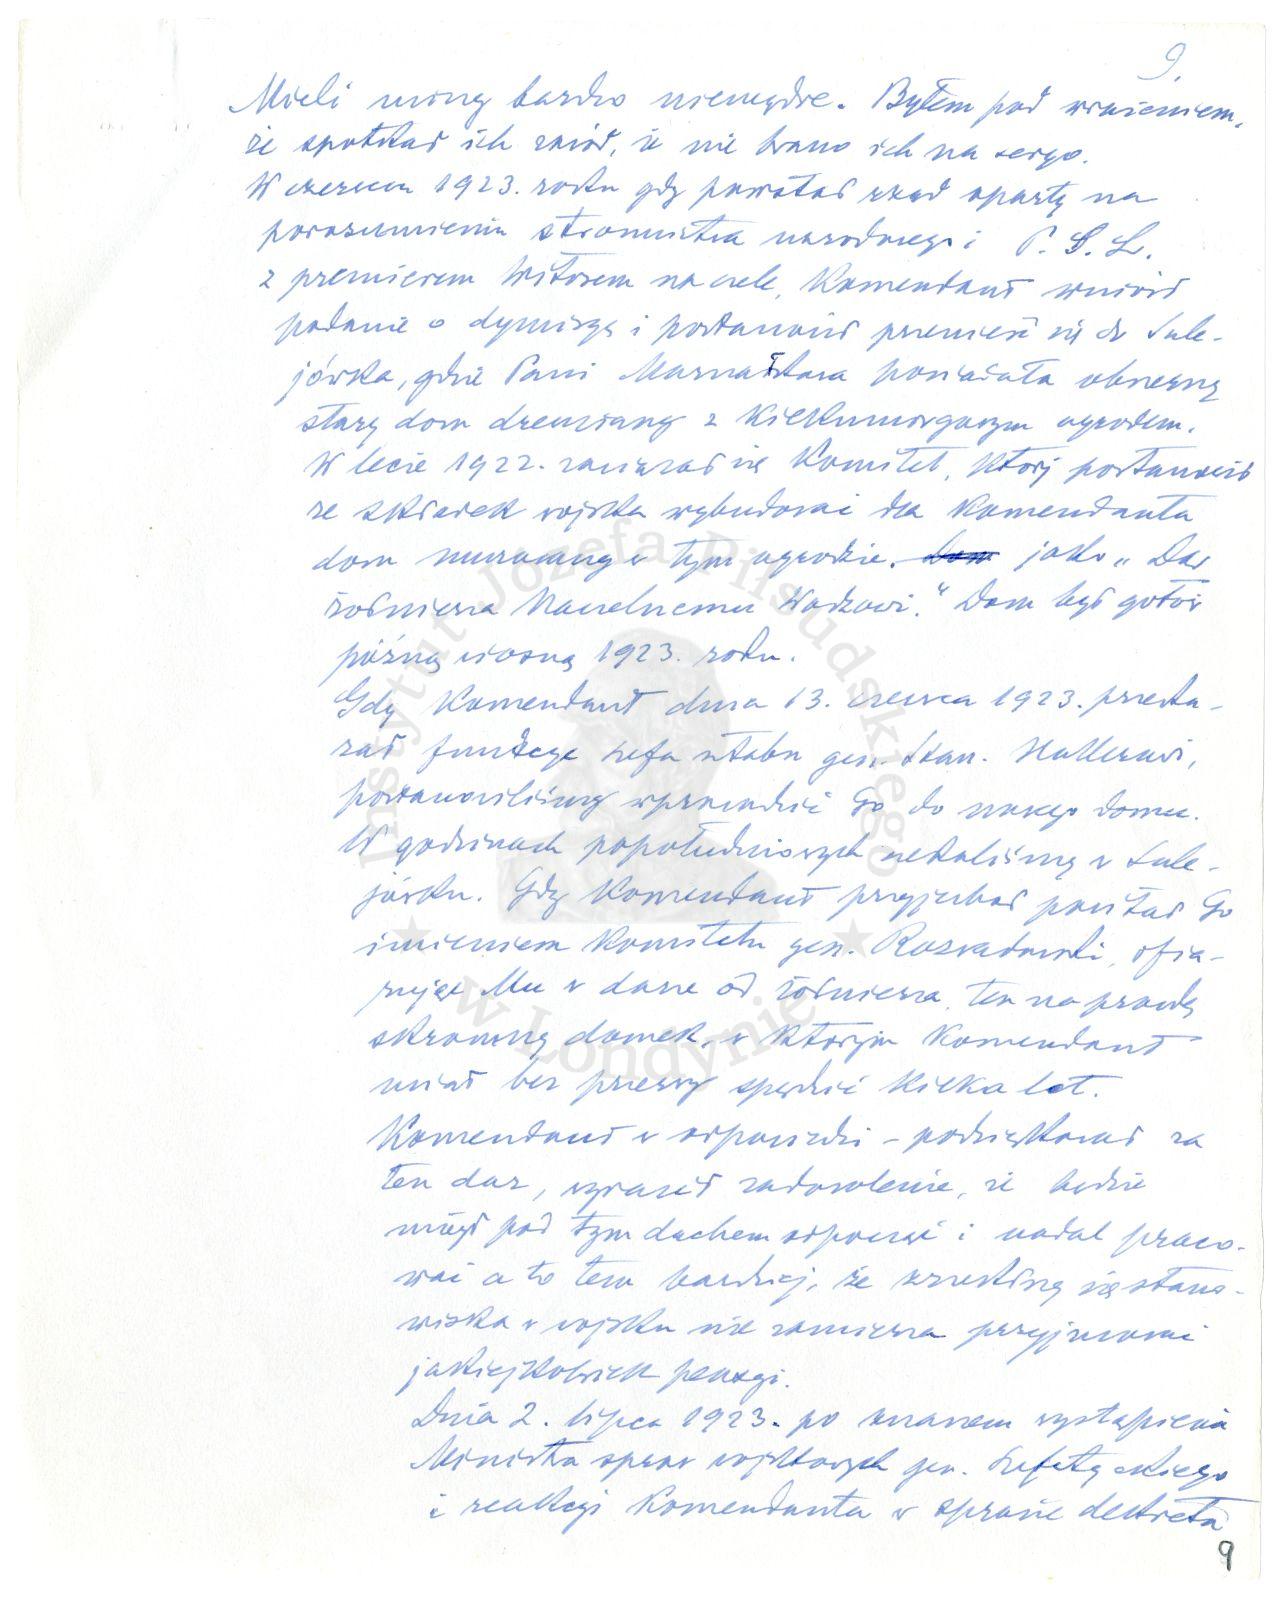 9.
Mieli miny bardzo nienęgdre. Byłem pod wrażeniem,
że spotkał ich zawód, iż nie brano ich na serjo.
W czerwcu 1923. roku gdy powstał rząd oparty na
porozumieniu stronnictwa narodowego i P. S. L.
z premierem Witosem na czele, Komendant wniósł
podanie o dymisję i postanowił przenieść się do Sule-
jówka, gdzie Pani Marszałkowa posiadała obszerny
stary dom drewniany z kilkumorgowym ogrodem.
W lecie 1922. zawiązał się Komitet, który postanowił
ze składek wojska wybudować dla Komendanta
dom murowany w tym ogrodzie. jako „Dar
żołnierza Naczelnemu Wodzowi." Dom był gotów
późną wiosną 1923. roku.
Gdy Komendant dnia 13. czerwca 1923. przeka-
zał funkcje szefa sztabu gen. Stan. Hallerowi,
postanowiliśmy wprowadzić Go do nowego domu.
W godzinach popołudniowych czekaliśmy w Sule-
jówku. Gdy Komendant przyjechał powitał Go
imieniem Komitetu gen. Rozwadowski, ofia-
rując Mu w darze od żołnierza, ten naprawdę
skromny domek, w którym Komendant
miał bez przerwy spędzić kilka lat.
Komendant w odpowiedzi - podziękował za
ten dar, wyraził zadowolenie, iż będzie
mógł pod tym dachem odpocząć i nadal praco-
wać a to tem bardziej, że zrzekłszy się stano-
wiska w wojsku nie zamierza przyjmować
jakiejkolwiek pensyi.
Dnia 2. lipca 1923. po znanem wystąpieniu
Ministra spraw wojskowych gen. Szeptyckiego
i reakcyi Komendanta w sprawie dekretu
9
Instytut Józefa Piłsudskiego
w Londynie